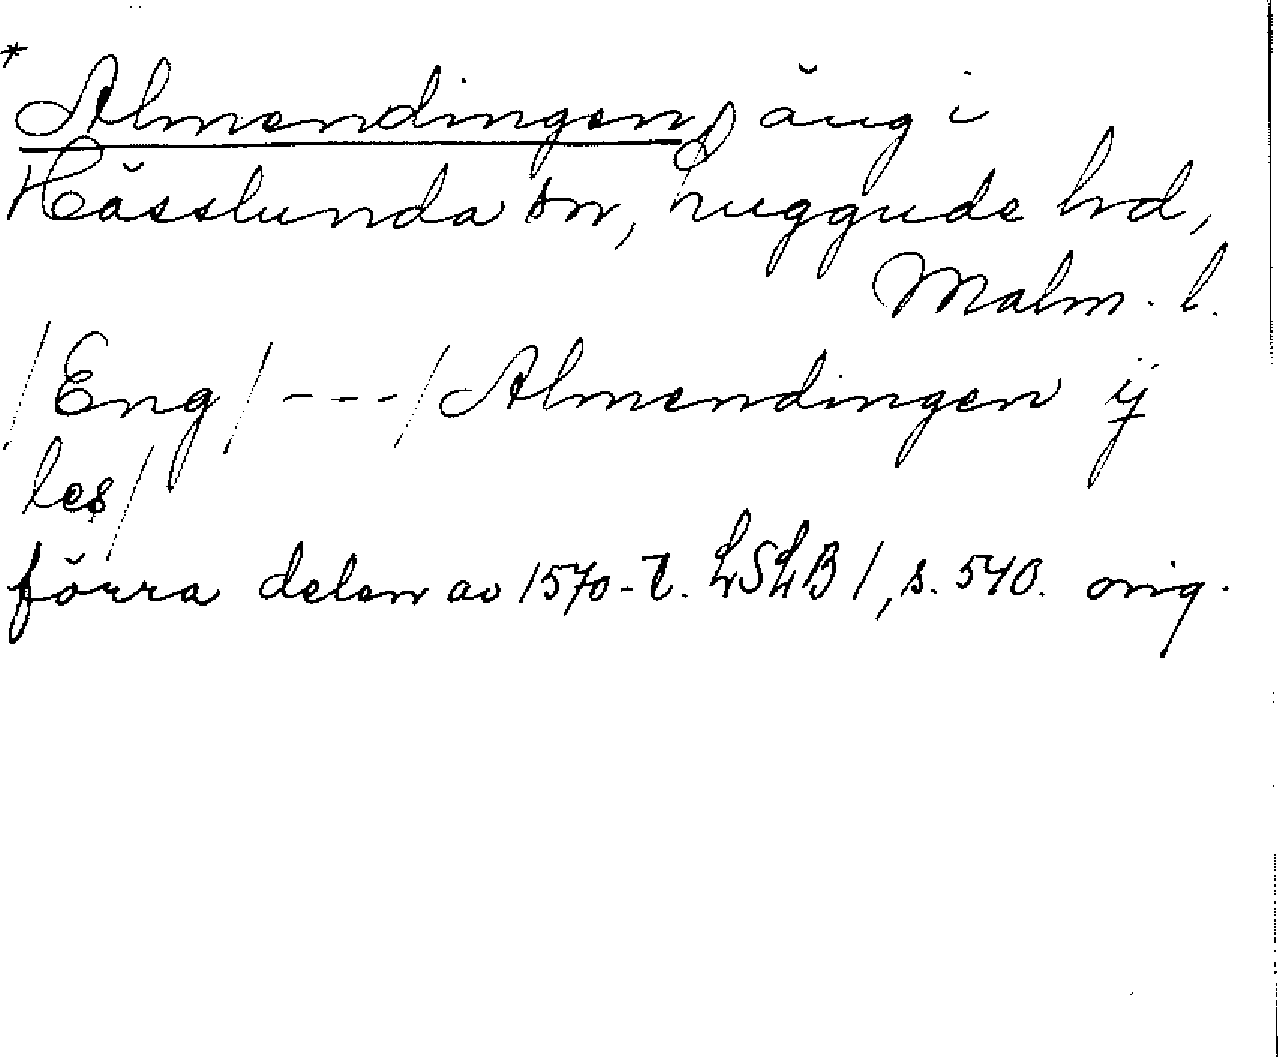 * Almendingen, äng i
Hässlunda sn, Luggude hd,
Malm. l.
/Eng/ --- / Almendingen ij
les/
förra delen av 1570-t. LSLB 1, s. 540. orig.